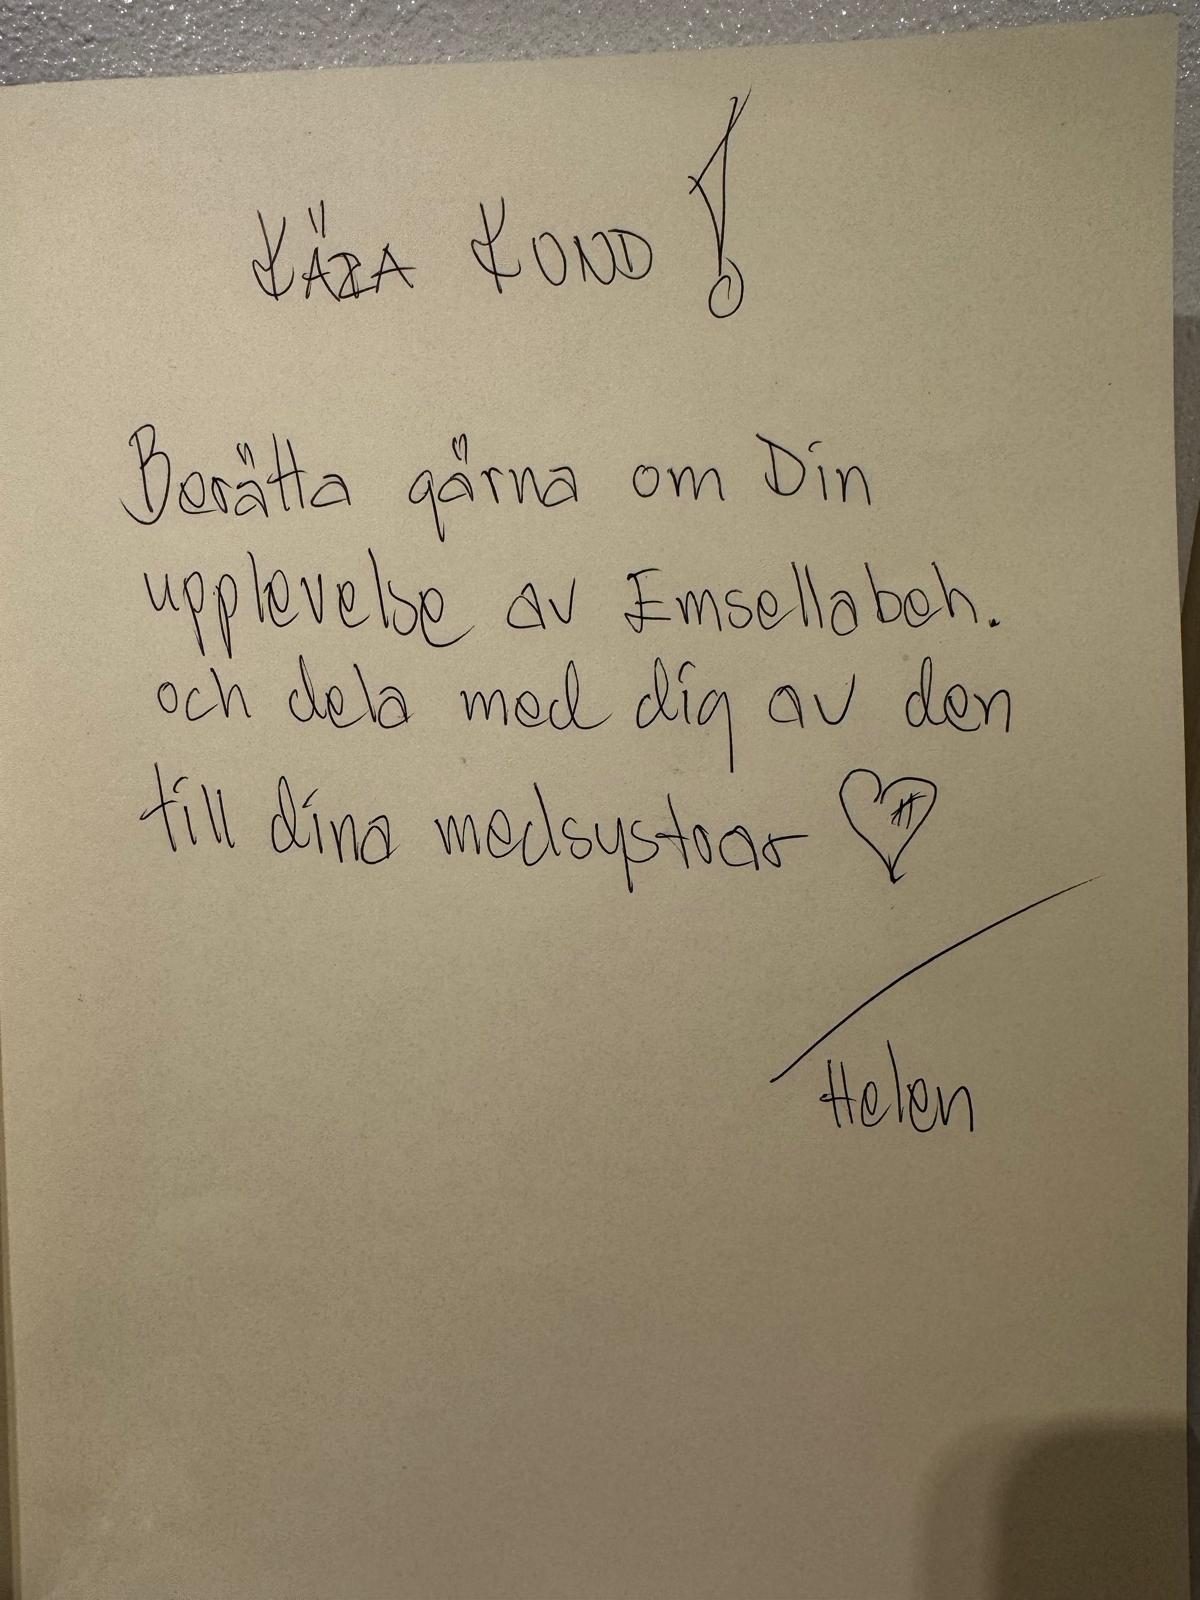 KÄRA KUND!
Berätta gärna om Din
upplevelse av Emsellabeh.
och dela med dig av den
till dina medsystrar
Helen